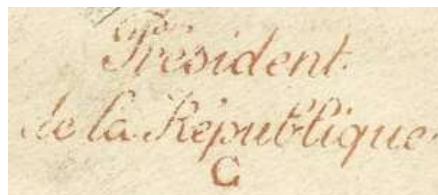 Président
de la République
C